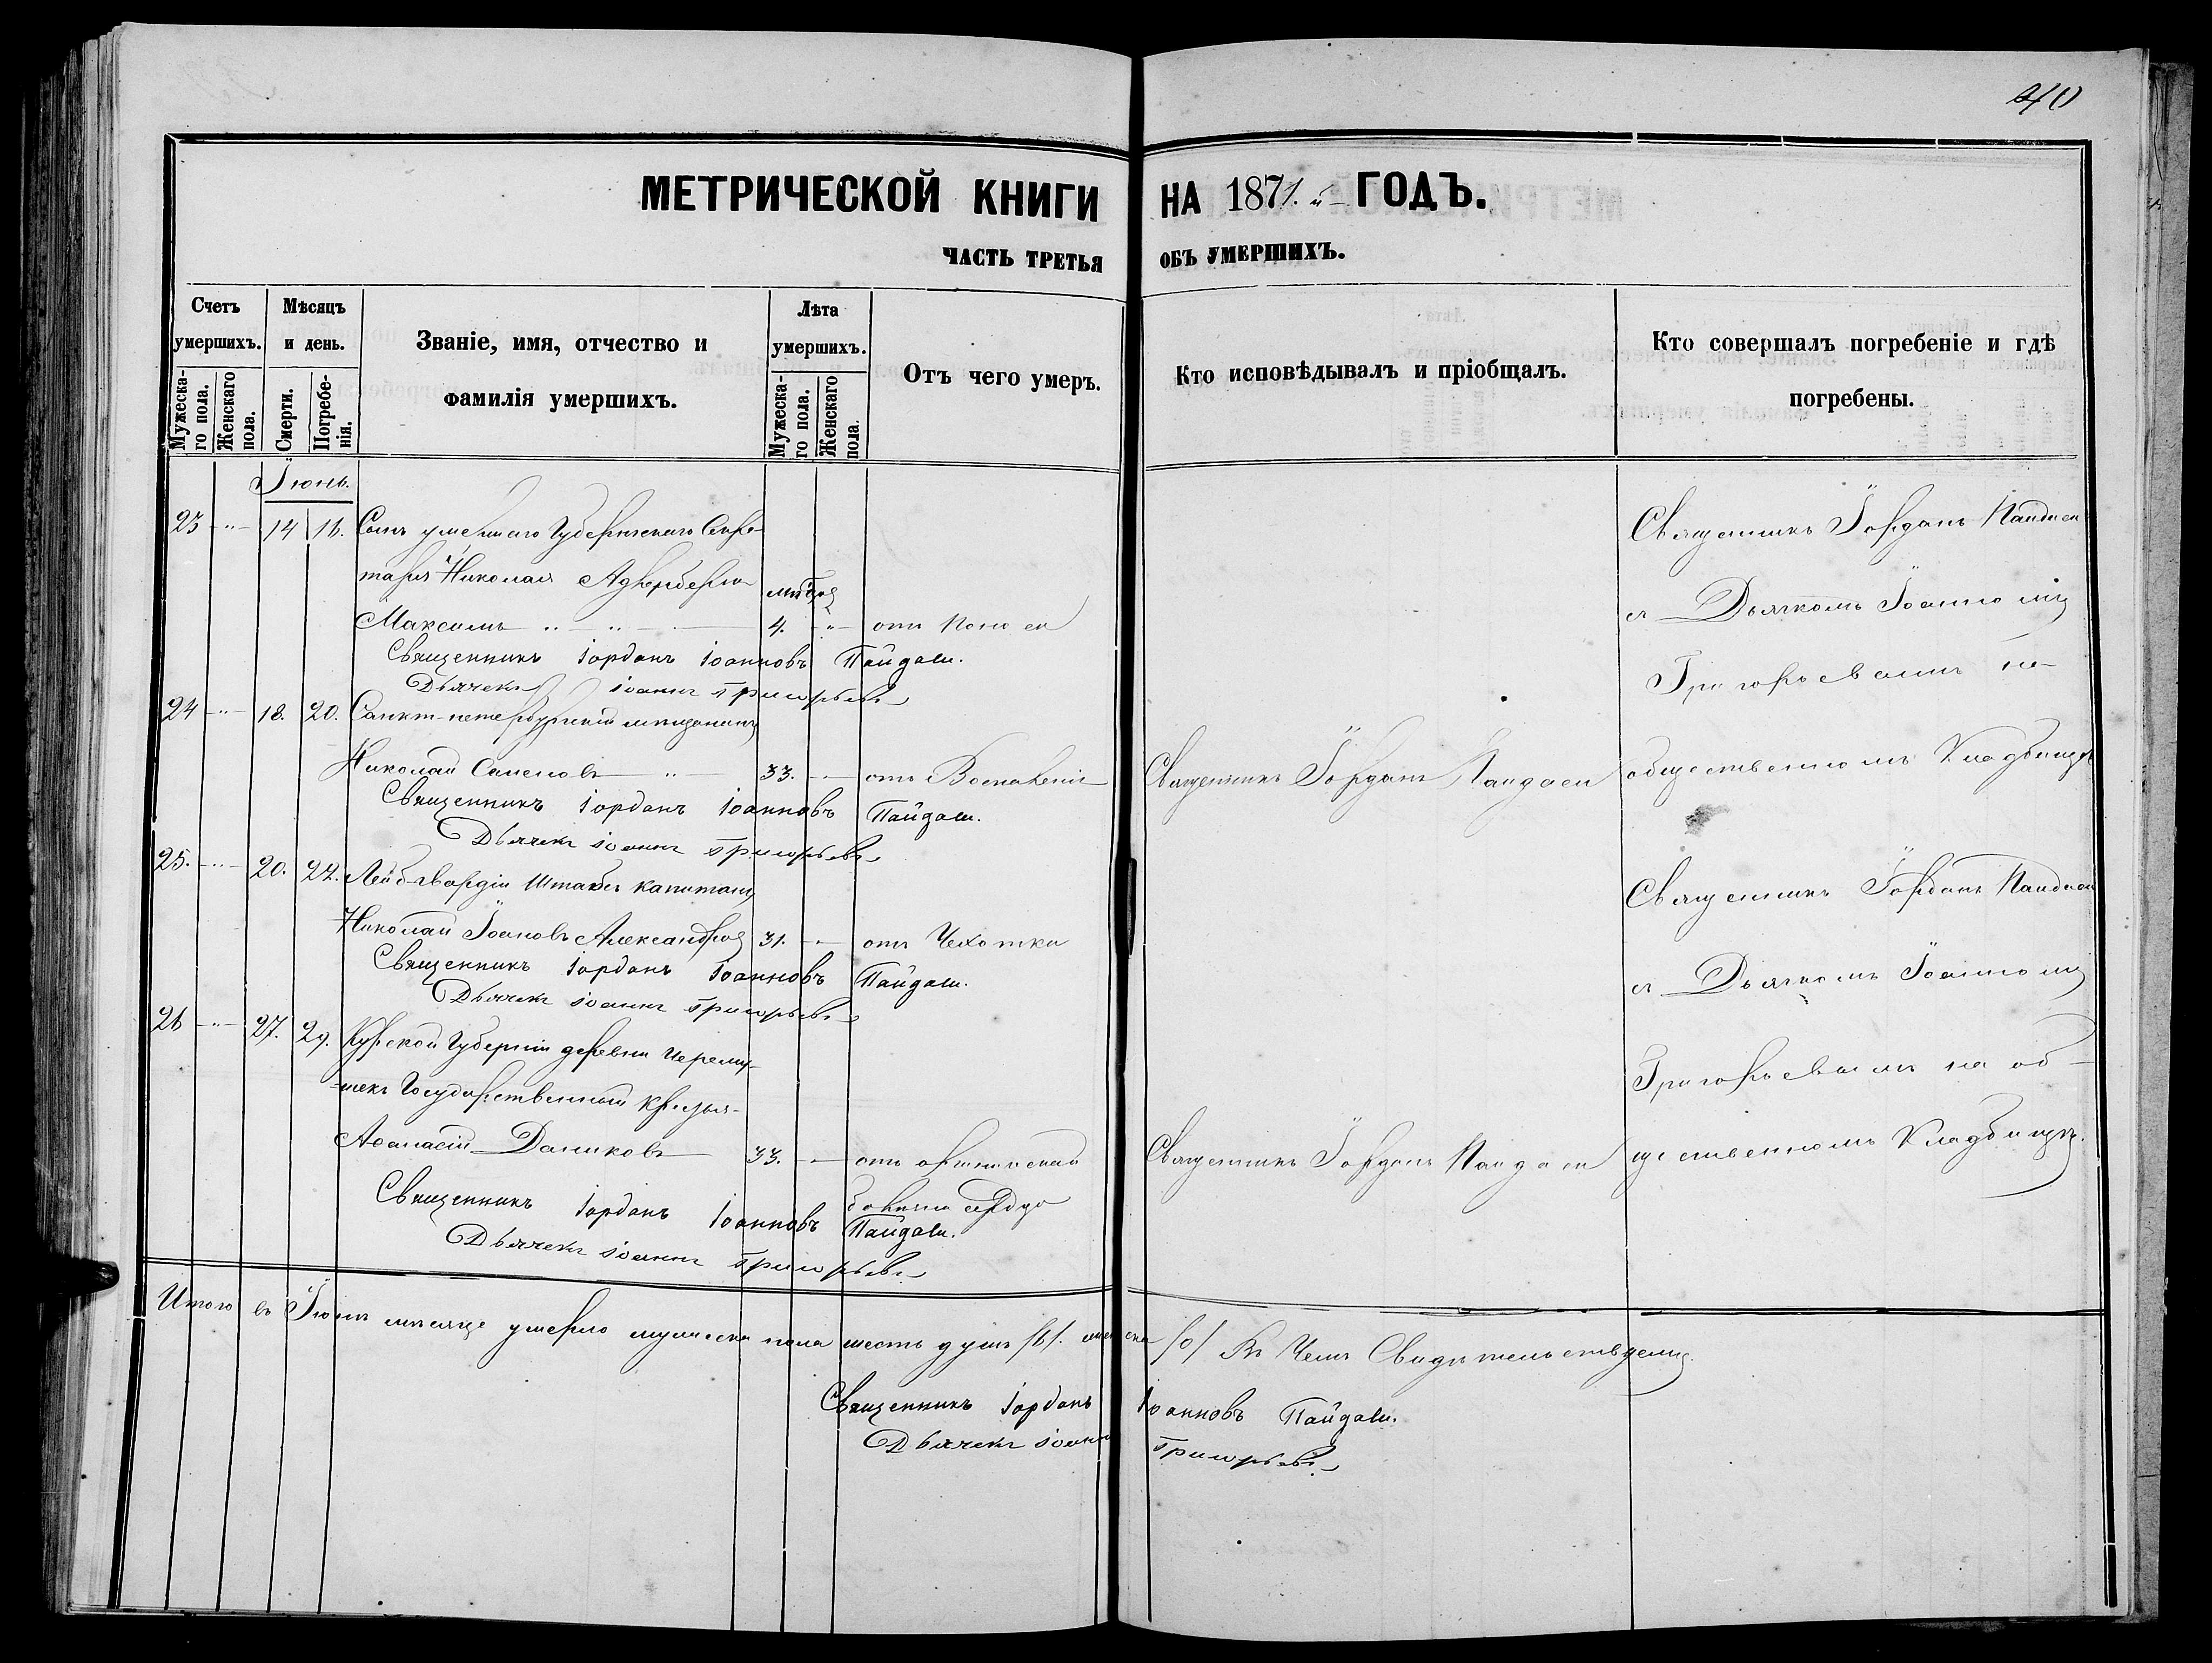 40
МЕТРИЧЕСКОЙ КНИГИ НА 1871.й ГОДЪ.
ЧАСТЬ ТРЕТЬЯ ОБЪ УМЕРШИХЪ.
Счетъ умершихъ.
Мужескаго пола.
Женскаго пола.
Мѣсяцъ и день.
Смерти.
Погребенія.
Званіе, имя, отчество и фамилія умершихъ.
Лѣта умершихъ.
Мужескаго пола.
Женскаго пола.
Отъ чего умеръ.
Кто исповѣдывалъ и пріобщалъ.
Кто совершалъ погребеніе и гдѣ погребены.
Іюнь.
23 - 14 16. Сынъ умершаго Губернскаго Секре-
таря Николая
Максимъ 4. отъ поноса
Священникъ Іорданъ Іоанновъ Пайдаси.
Дьячекъ Іоаннъ Григорьевъ
24 - 18. 20. Санкт-петербургскій мѣщанинъ
Николай Семеновъ 33. отъ Воспаленія
Священникъ Іорданъ Іоанновъ Пайдаси.
Дьячекъ Іоаннъ Григорьевъ
25. - 20. 22. Лейбгвардіи Штабсъ капитанъ
Николай Іоановъ Александров 31. отъ Чехотки
Священникъ Іорданъ Іоанновъ Пайдаси.
Дьячекъ Іоаннъ Григорьевъ
26 - 27. 29. Курской Губерніи деревни Черему-
шекъ Государственный крестья-
Афанасій Даниковъ 33. отъ
Священникъ Іорданъ Іоанновъ Пайдаси.
Дьячекъ Іоаннъ Григорьевъ
Священникъ Іорданъ Пайдаси
Священникъ Іорданъ Пайдаси
Священникъ Іорданъ Пайдаси
съ Дьячкомъ Іоанномъ
Григорьевымъ на
общественномъ Кладбищѣ
Священникъ Іорданъ Пайдаси
съ Дьячкомъ Іоанномъ
Григорьевымъ на об-
щественномъ Кладбищѣ.
Итого въ Іюнѣ мѣсяце умерло мужеска пола шесть душъ /6/. женска /0/ Въ Чемъ Свидѣтельствуемъ.
Священникъ Іорданъ Іоанновъ Пайдаси.
Дьячекъ Іоаннъ Григорьевъ